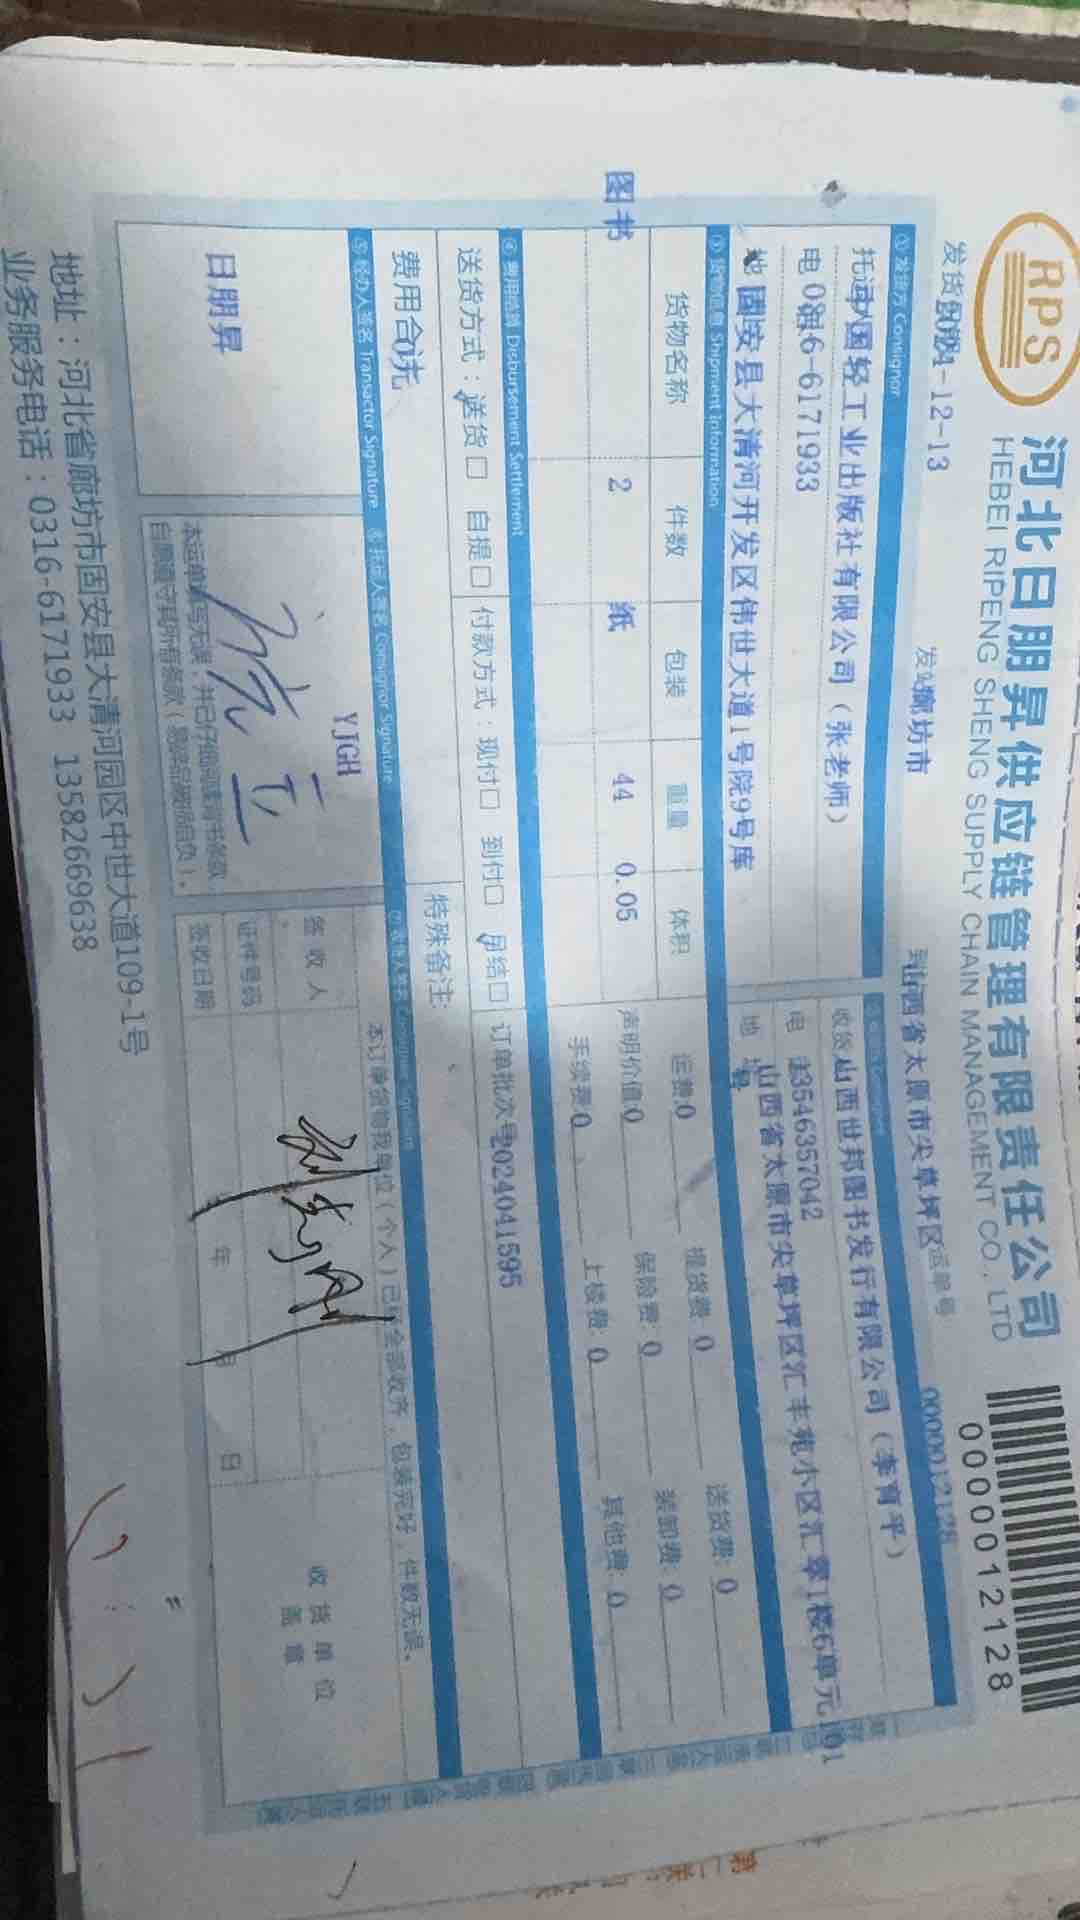 RPS
河北日朋昇供应链管理有限责任公司
HEBEI RIPENG SHENG SUPPLY CHAIN MANAGEMENT CO., LTD
000012128
-12-13
廊坊市
山西省太原市尖草坪区
运单号
000012128
① 发货方 Consignor
中国轻工业出版社有限公司（张老师）
山西世邦图书发行有限公司（李育平）
-6171933
13546357042
固安县大清河开发区伟世大道1号院9号库
山西省太原市尖草坪区汇丰苑小区汇翠1楼6单元101号
③ 货物信息 Shipment Information
货物名称 件数 包装 重量 体积
运费:0 提货费: 0 送货费: 0
图书 2 纸 44 0.05
声明价值:0 保险费: 0 装卸费: 0
手续费:0 上楼费: 0 其他费: 0
④ 费用结算 Disbursement Settlement
送货方式：送货□ 自提□ 付款方式：现付□ 到付□ 月结□ 订单批次号2024041595
费用合计
特殊备注:
⑤ 经办人签名 Transactor Signature ⑥ 托运人签名 Consignor Signature
日朋昇
YJGH
本订单货物我单位（个人）已经全部收齐，包装完好，件数无误。
签收人
证件号码
签收日期 年 月 日
收货单位
盖章
地址：河北省廊坊市固安县大清河园区中世大道109-1号
业务服务电话：0316-6171933 13582669638